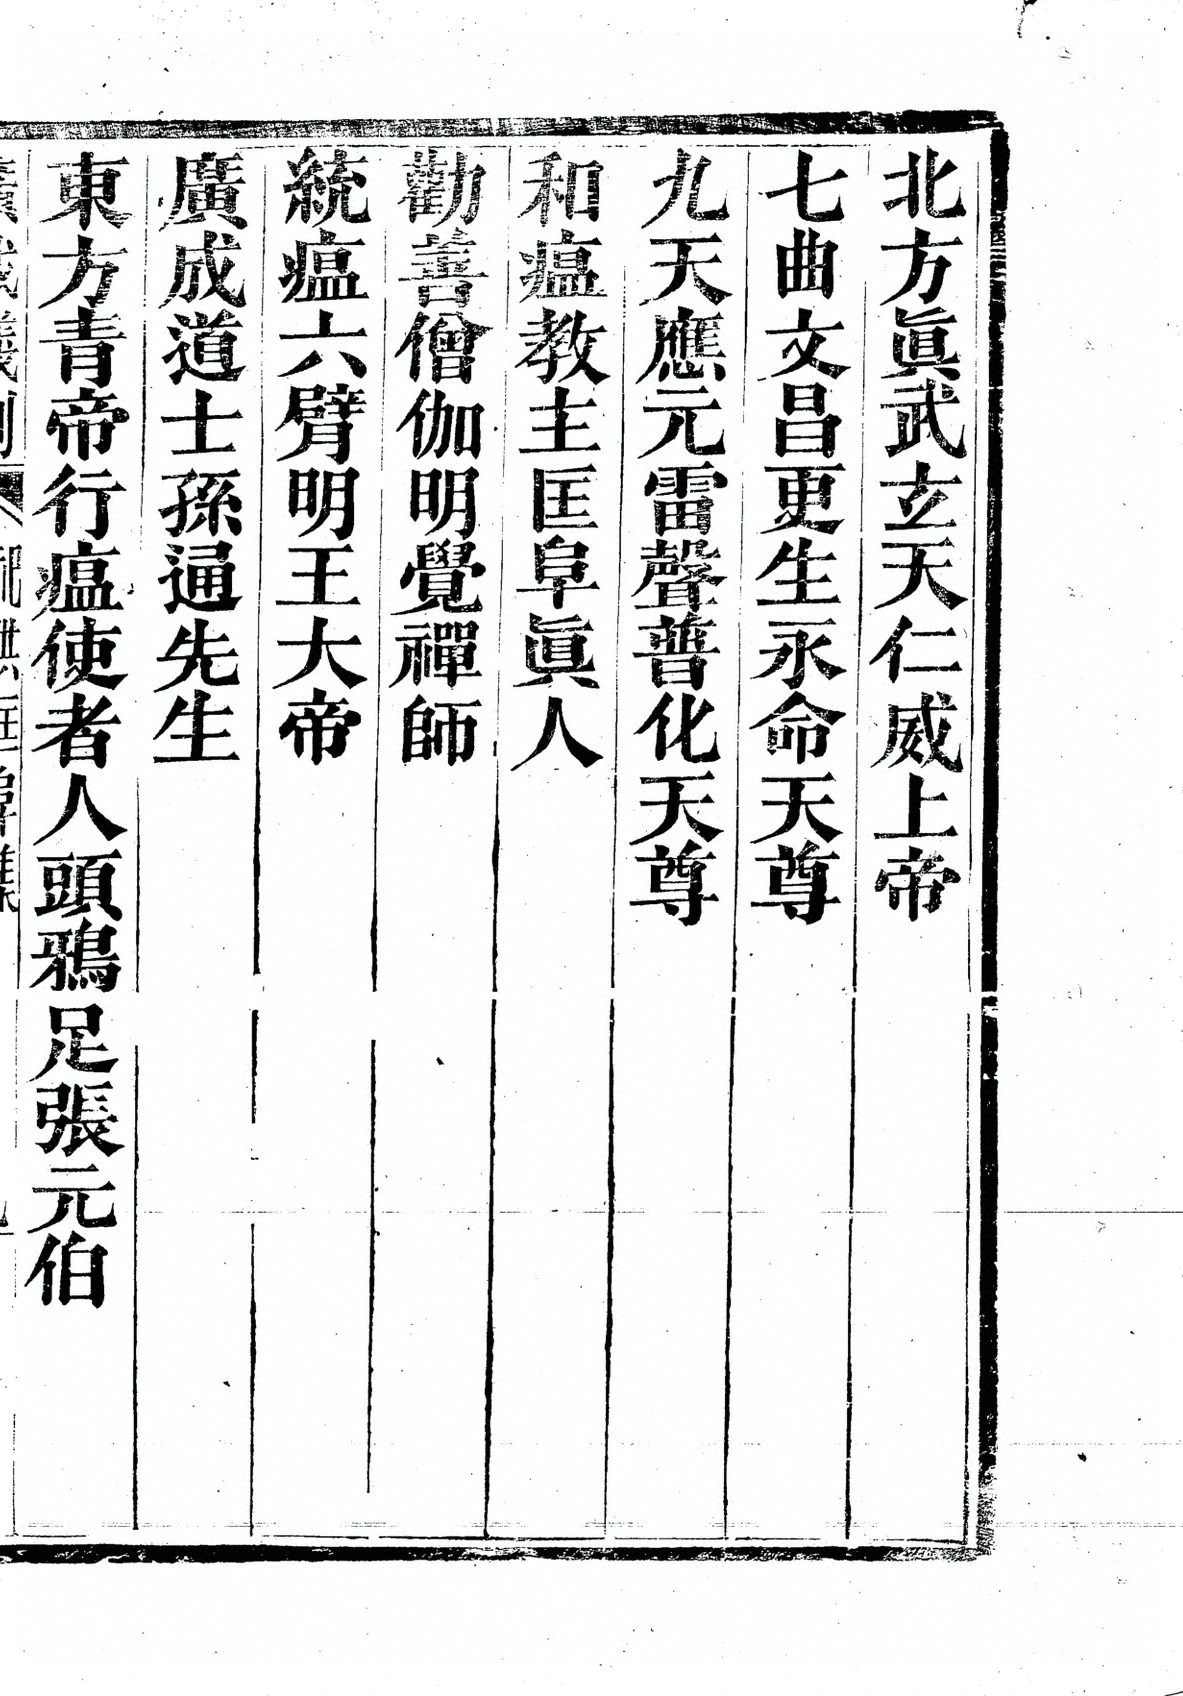 北方眞武玄天仁威上帝
七曲文昌更生永命天尊
九天應元雷聲普化天尊
和瘟教主匡阜眞人
勸善僧伽明覺禪師
統瘟六臂明王大帝
廣成道士孫通先生
東方青帝行瘟使者人頭鴉足張元伯